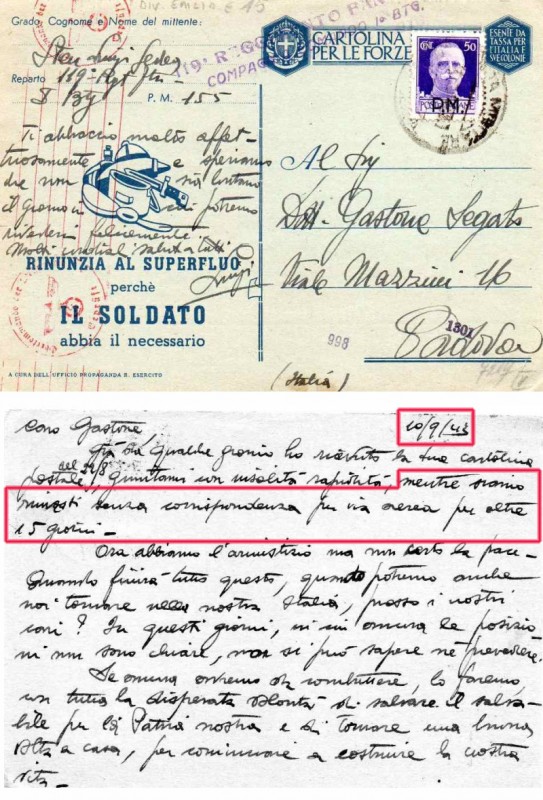 DIV. EMILIA E 13
Grado, Cognome e Nome del mittente:
119° REGGIMENTO FAN
COMPAG
BTG.
CARTOLINA
PER LE FORZE
ESENTE DA
TASSA PER
L'ITALIA
VEGLIONLE
CENT. 50
P.M.
Reparto 119° Rgt
P. M. 155
Ti abbraccio molto affet-
tuosamente e speriamo
che non sia lontano
il giorno in cui potremo
rivederci felicemente.
Molti cordiali saluti a tutti
Luigi
Al Sig
Dott. Gastone Segato
Viale Mazzini 16
Padova
(Italia)
998
1301
RINUNZIA AL SUPERFLUO
perchè
IL SOLDATO
abbia il necessario
A CURA DELL'UFFICIO PROPAGANDA R. ESERCITO
Caro Gastone,
10/9/43
Già da qualche giorno ho ricevuto la tua cartolina
postale del 22/8, giuntami con insolita rapidità, mentre siamo
rimasti senza corrispondenza per via aerea per oltre
15 giorni -
Ora abbiamo l'armistizio ma non certo la pace -
Quando finirà tutto questo, quando potremo anche
noi tornare nella nostra Italia, presso i nostri
cari? In questi giorni, in cui ancora le posizio
ni non sono chiare, non si può sapere nè prevedere.
Se ancora avremo da combattere, lo faremo
con tutta la disperata volontà di salvare il salva-
bile per la Patria nostra e di tornare una buona
volta a casa, per cominciare a costruire la nostra
vita -